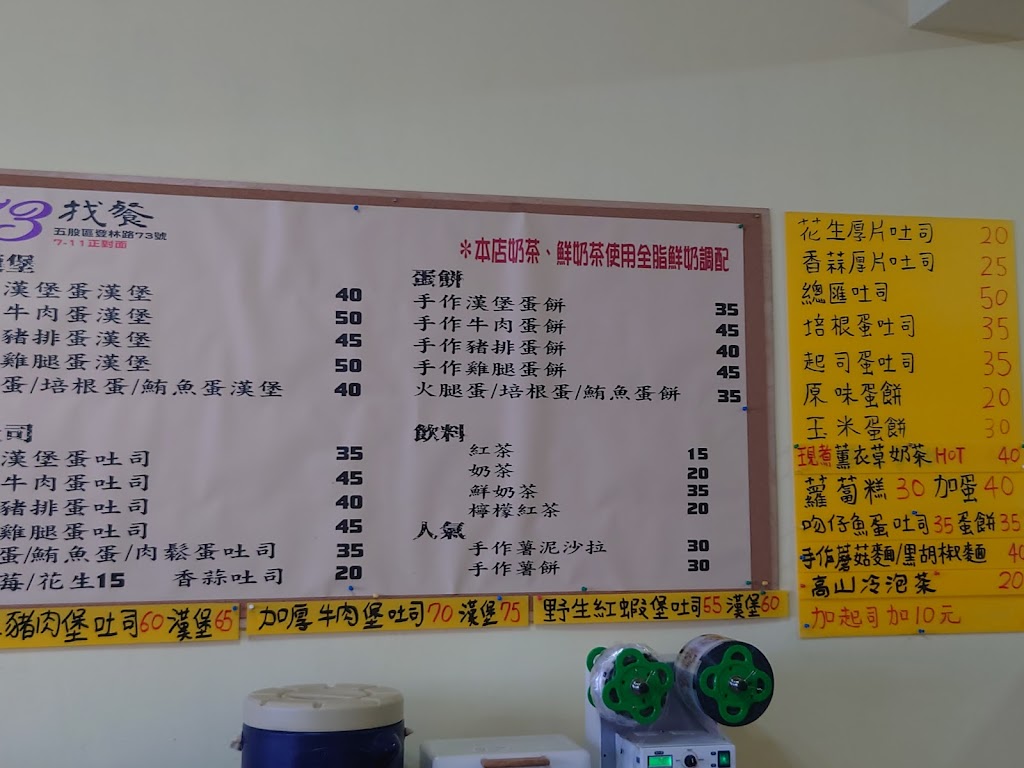 73 找餐
五股區登林路73號
7-11正對面
*本店奶茶、鮮奶茶使用全脂鮮奶調配
堡
漢堡蛋漢堡 40
牛肉蛋漢堡 50
豬排蛋漢堡 45
雞腿蛋漢堡 50
蛋/培根蛋/鮪魚蛋漢堡 40
司
漢堡蛋吐司 35
牛肉蛋吐司 45
豬排蛋吐司 40
雞腿蛋吐司 45
蛋/鮪魚蛋/肉鬆蛋吐司 35
莓/花生15 香蒜吐司 20
蛋餅
手作漢堡蛋餅 35
手作牛肉蛋餅 45
手作豬排蛋餅 40
手作雞腿蛋餅 45
火腿蛋/培根蛋/鮪魚蛋餅 35
飲料
紅茶 15
奶茶 20
鮮奶茶 35
檸檬紅茶 20
人氣
手作薯泥沙拉 30
手作薯餅 30
豬肉堡吐司60 漢堡65
加厚牛肉堡吐司70 漢堡75
野生紅蝦堡吐司55 漢堡60
花生厚片吐司 20
香蒜厚片吐司 25
總匯吐司 50
培根蛋吐司 35
起司蛋吐司 35
原味蛋餅 20
玉米蛋餅 30
現煮薰衣草奶茶HOT 40
蘿蔔糕30 加蛋40
吻仔魚蛋吐司35 蛋餅35
手作蘑菇麵/黑胡椒麵 40
高山冷泡茶 20
加起司加10元